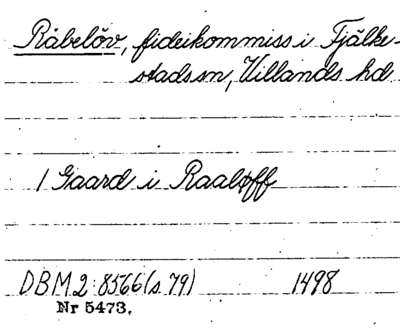 Råbelöv, fideikommiss i Fjälke-
stads sn, Villands hd
1 Gaard i Raaløff
DBM 2:8566 (s. 79) 1498
Nr 5473.